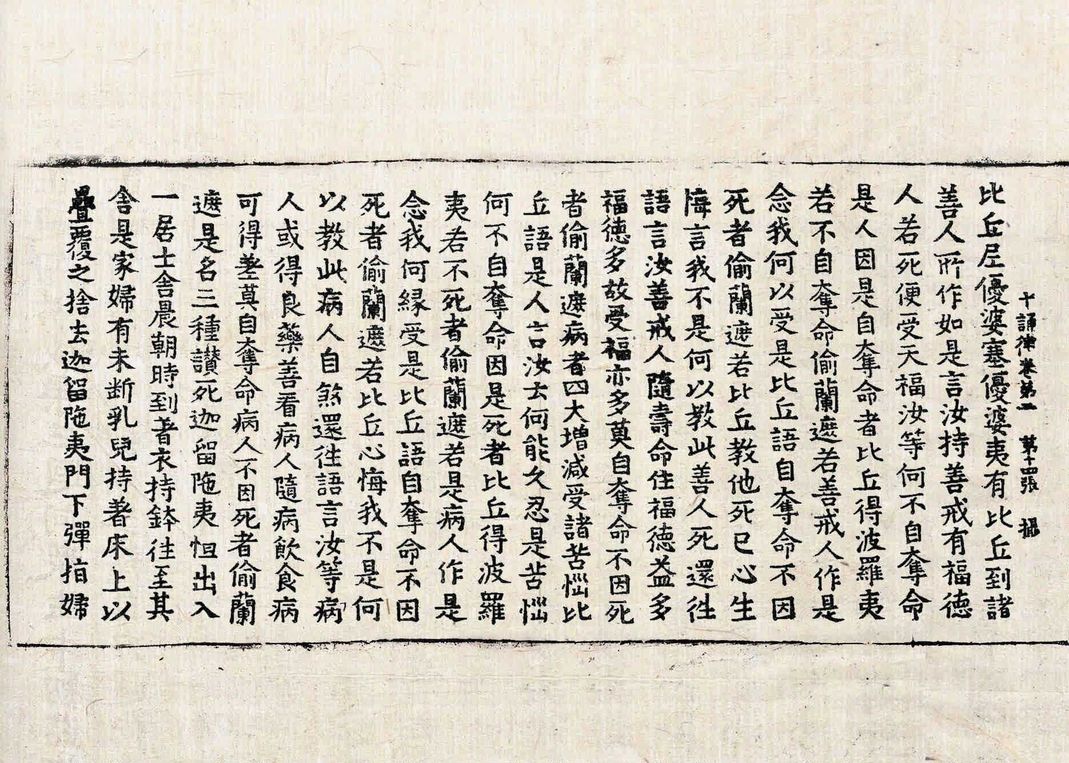 十誦律卷第二 第十四張 攝
比丘尼優婆塞優婆夷有比丘到諸
善人所作如是言汝持善戒有福德
人若死便受天福汝等何不自奪命
是人因是自奪命者比丘得波羅夷
若不自奪命偷蘭遮若善戒人作是
念我何以受是比丘語自奪命不因
死者偷蘭遮若比丘教他死已心生
悔言我不是何以教此善人死還往
語言汝善戒人隨壽命住福德益多
福德多故受福亦多莫自奪命不因死
者偷蘭遮病者四大增減受諸苦惱比
丘語是人言汝云何能久忍是苦惱
何不自奪命因是死者比丘得波羅
夷若不死者偷蘭遮若是病人作是
念我何緣受是比丘語自奪命不因
死者偷蘭遮若比丘心悔我不是何
以教此病人自煞還往語言汝等病
人或得良藥善看病人隨病飲食病
可得差莫自奪命病人不因死者偷蘭
遮是名三種讃死迦留陁夷恒出入
一居士舍晨朝時到著衣持鉢往至其
舍是家婦有未斷乳兒持著床上以
疊覆之捨去迦留陁夷門下彈指婦